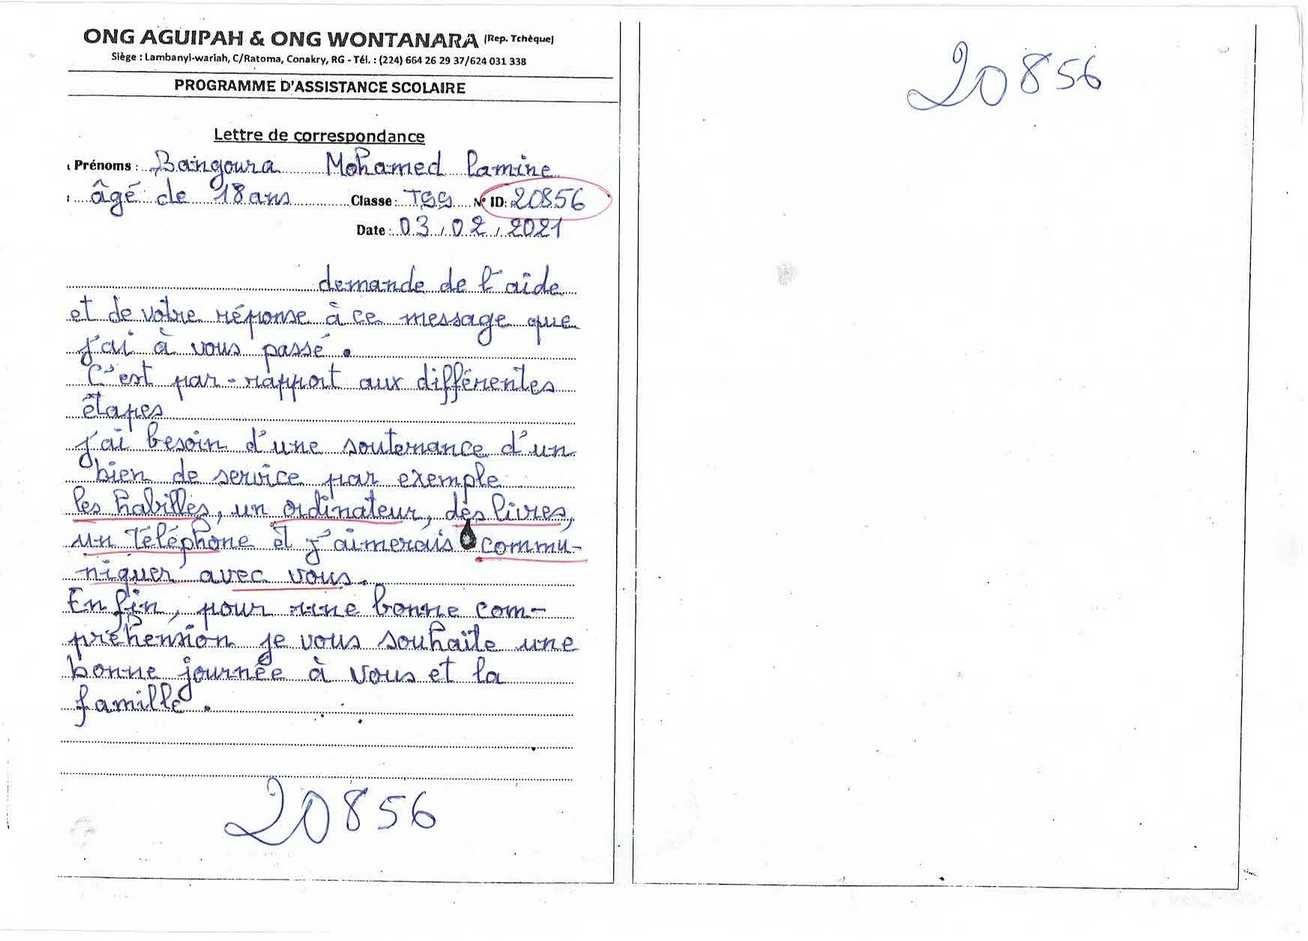 ONG AGUIPAH & ONG WONTANARA (Rep. Tchèque)
Siège : Lambanyi-wariah, C/Ratoma, Conakry, RG - Tél. : (224) 664 26 29 37/624 031 338
PROGRAMME D'ASSISTANCE SCOLAIRE
Lettre de correspondance
Prénoms : Bangoura Mohamed Lamine
: âgé de 18 ans Classe : TSS N° ID: 20856
Date : 03/02/2021
demande de l'aide
et de votre réponse à ce message que
j'ai à vous passé.
C'est par-rapport aux différentes
étapes
j'ai besoin d'une soutenance d'un
bien de service par exemple
les habilles, un ordinateur, des livres,
un Téléphone et j'aimerais commu-
niquer avec vous.
Enfin, pour une bonne com-
préhension je vous souhaite une
bonne journée à vous et la
famille.
20856
20856